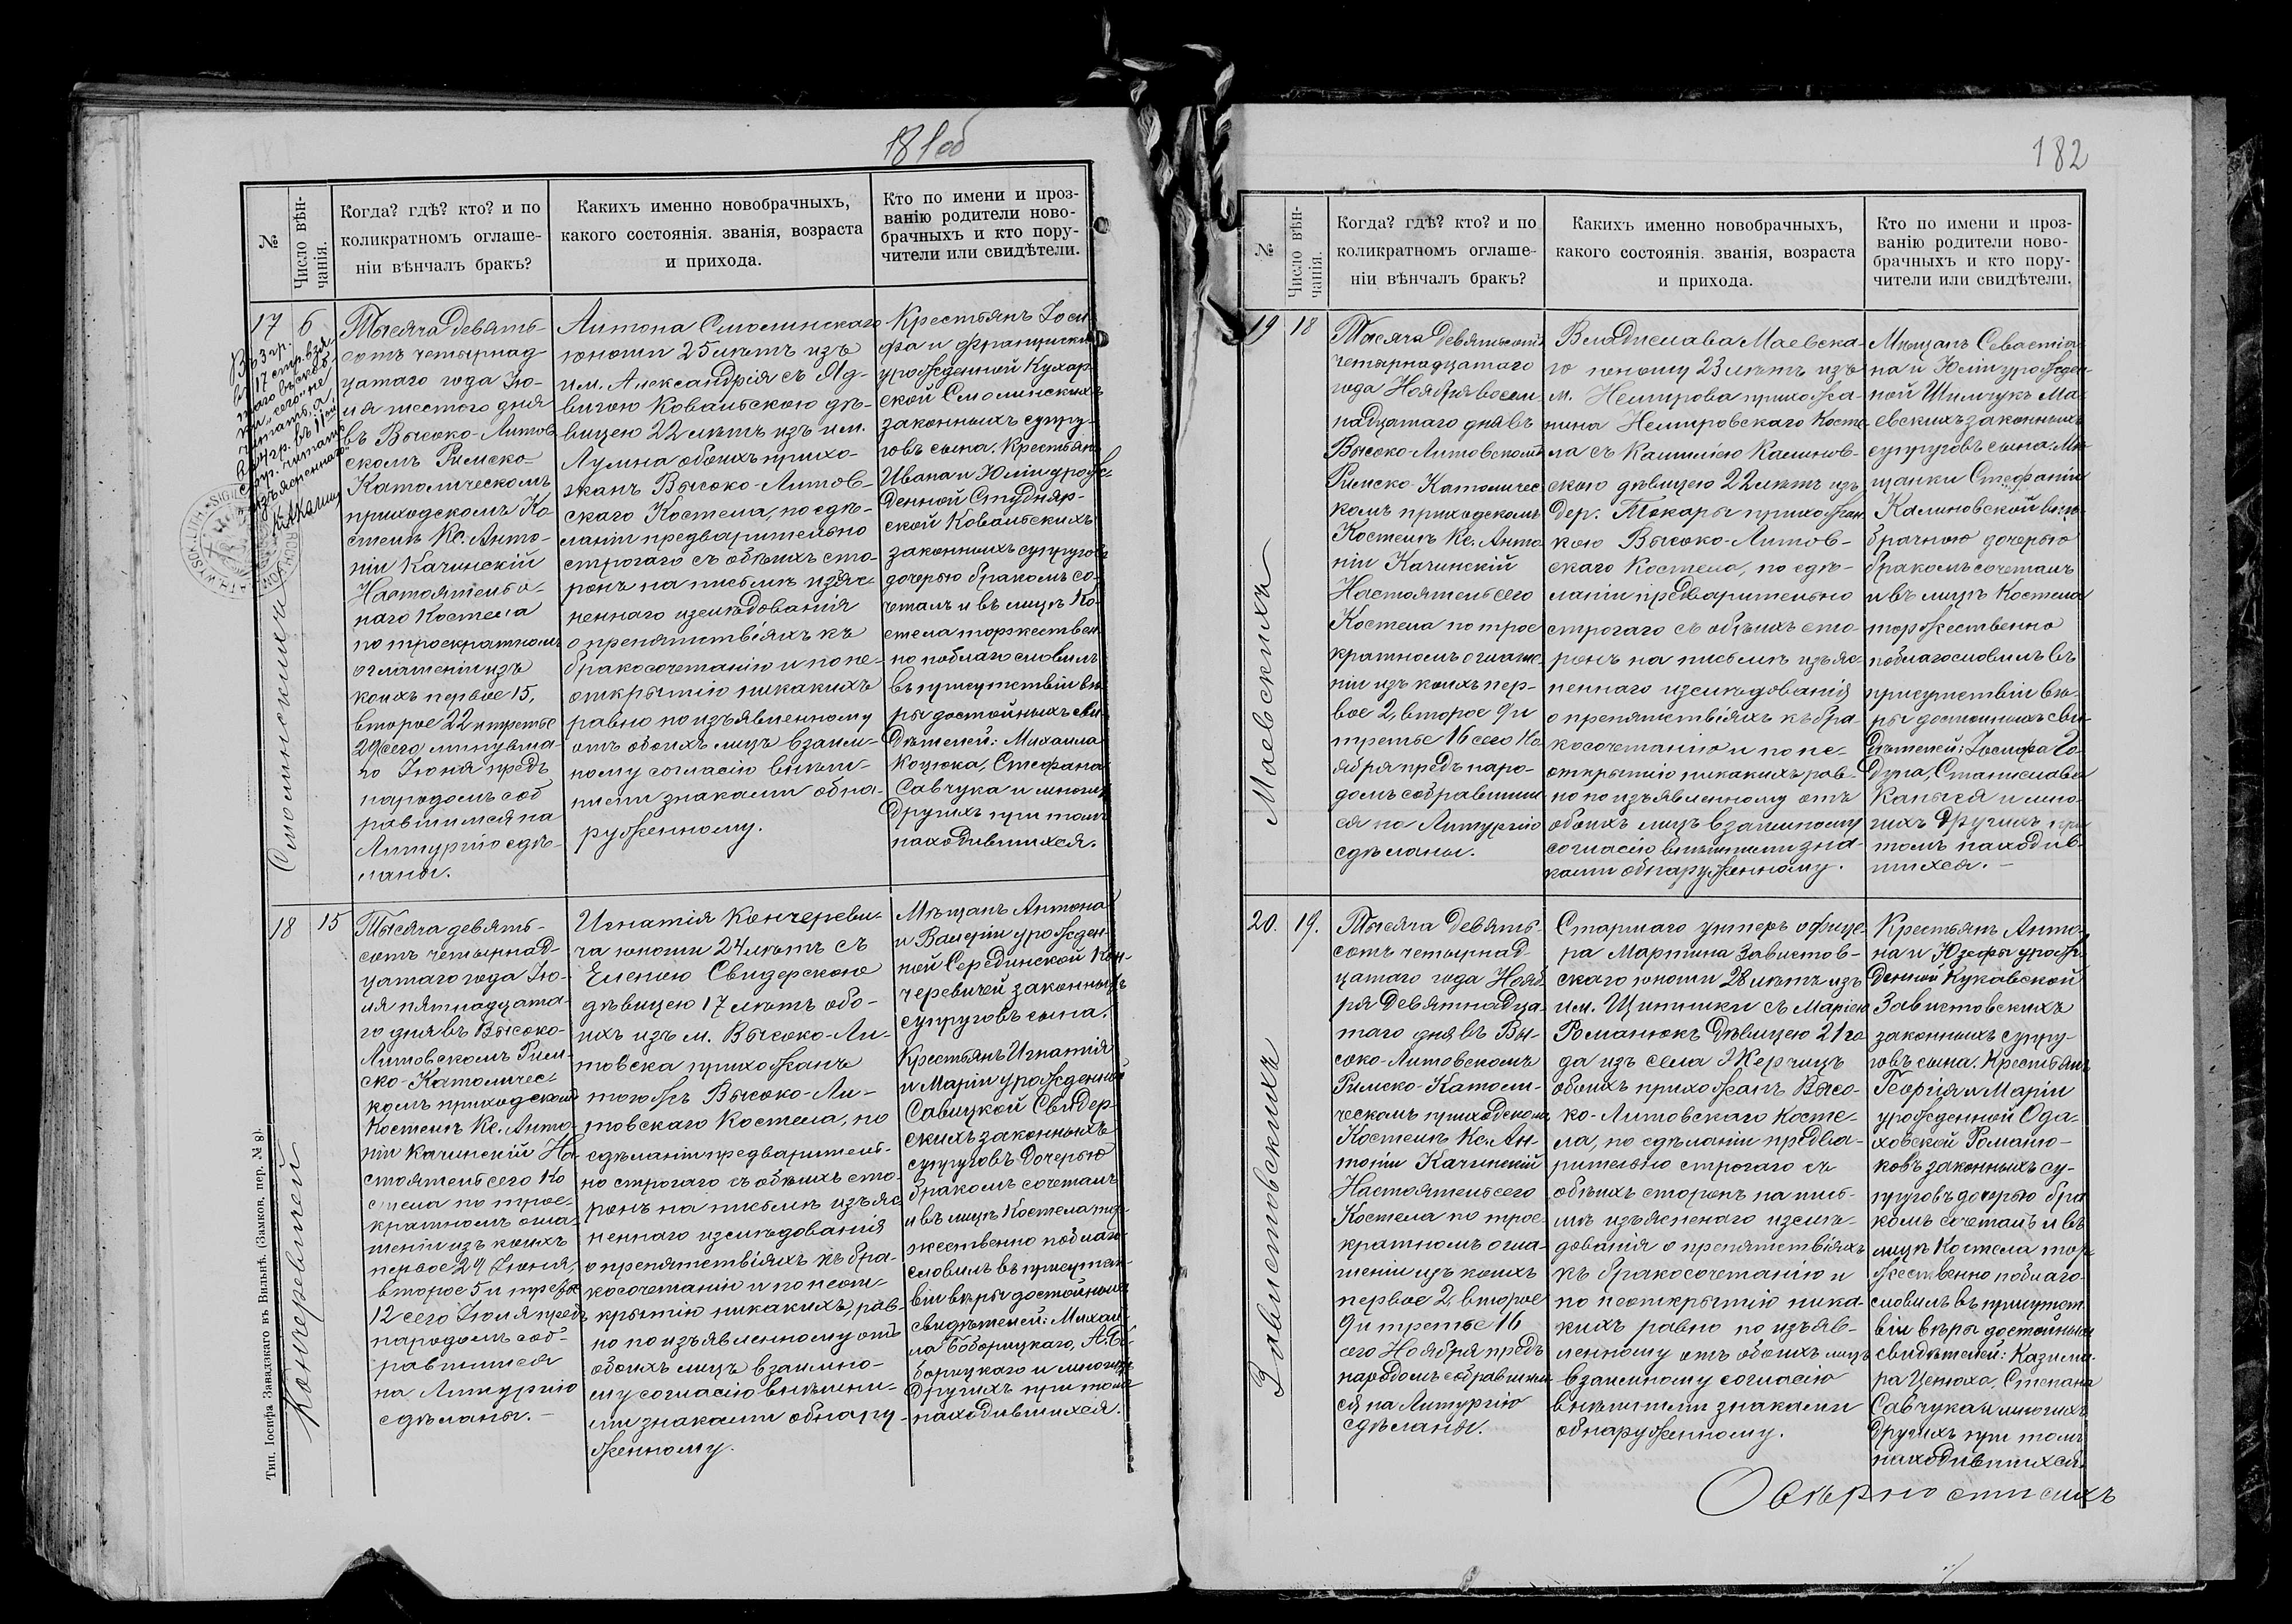 181об
№
Число вѣн-
чанія.
Когда? гдѣ? кто? и по
коликратномъ оглаше-
ніи вѣнчалъ бракъ?
Какихъ именно новобрачныхъ,
какого состоянія. званія, возраста
и прихода.
Кто по имени и проз-
ванію родители ново-
брачныхъ и кто пору-
чители или свидѣтели.
17
6
Смолинскихъ
Тысяча девять-
сотъ четырнад-
цатаго года Ію-
ля шестого дня
въ Высоко-Литов
скомъ Римско-
Католическомъ
приходскомъ Ко
стелѣ Кс. Анто-
ній Качинскій
Настоятель о-
наго Костела
по троекратномъ
оглашеніи изъ
коихъ первое 15,
второе 22 и третье
29 сего минувша-
го Іюня предъ
народомъ соб
равшимся на
Литургію сдѣ-
ланы.
Антона Смолинскаго
юношу 25 лѣтъ изъ
им. Александрія съ Яд-
вигою Ковальскою дѣ-
вицею 22 лѣтъ изъ им.
Лумна обоихъ прихо-
жанъ Высоко-Литов-
скаго Костела, по сдѣ-
ланіи предварительно
строгаго съ обѣихъ сто-
ронъ на письмѣ изъяс-
неннаго изслѣдованія
о препятствіяхъ къ
бракосочетанію и по не-
открытію никакихъ
равно по изъявленному
отъ обоихъ лицъ взаим-
ному согласію внѣш-
ними знаками обна-
руженному.
Крестьянъ Іоси
фа и Франциски
урожденной Кухар
ской Смолинскихъ
законныхъ супру-
говъ сына. Крестьянъ
Ивана и Юліи урож-
денной Студняр-
ской Ковальскихъ
законныхъ супруговъ
дочерью бракомъ со-
четалъ и въ лицѣ Ко-
стела торжествен
но поблагословилъ
въ присутствіи вѣ-
ры достойныхъ сви
дѣтелей: Михаила
Коцюка, Стефана
Савчука и многихъ
другихъ при томъ
находившихся.
18
15
Кончеревичей
Тысяча девять-
сотъ четырнад-
цатаго года Ію-
ля пятнадцата-
го дня въ Высоко-
Литовскомъ Рим-
ско-Католичес-
комъ приходскомъ
Костелѣ Кс. Анто-
ній Качинскій На-
стоятель сего Ко
стела по трое-
кратномъ огла-
шеніи изъ коихъ
первое 29 Іюня,
второе 5 и третье
12 сего Іюля предъ
народомъ соб-
равшимся
на Литургію
сдѣланы.-
Игнатія Кончереви-
ча юношу 24 лѣтъ съ
Еленою Свидерскою
дѣвицею 17 лѣтъ обо-
ихъ изъ м. Высоко-Ли-
товска прихожанъ
того же Высоко-Ли-
товскаго Костела, по
сдѣланіи предваритель-
но строгаго съ обѣихъ сто-
ронъ на письмѣ изъяс
неннаго изслѣдованія
о препятствіяхъ къ бра-
косочетанію и по неот-
крытію никакихъ, рав-
но по изъявленному отъ
обоихъ лицъ взаимно-
му согласію внѣшни-
ми знаками обнару-
женному.
Мѣщанъ Антона
и Валеріи урожден-
ной Серединской Кон-
черевичей законныхъ
супруговъ сына.
Крестьянъ Игнатія
и Маріи урожденной
Савицкой Свидер-
скихъ законныхъ
супруговъ дочерью
бракомъ сочеталъ
и въ лицѣ Костела тор-
жественно поблаго-
словилъ въ присутст
віи вѣры достойныхъ
свидѣтелей: Михаи
ла Боборицкаго, А. Бо-
борицкаго и многихъ
другихъ при томъ
находившихся.
Тип. Іосифа Завадзкаго въ Вильнѣ. (Замков. пер. № 8).
182
№
Число вѣн-
чанія.
Когда? гдѣ? кто? и по
коликратномъ оглаше-
ніи вѣнчалъ бракъ?
Какихъ именно новобрачныхъ,
какого состоянія. званія, возраста
и прихода.
Кто по имени и проз-
ванію родители ново-
брачныхъ и кто пору-
чители или свидѣтели.
19
18
Маевскихъ
Тысяча девятьсотъ
четырнадцатаго
года Ноября восем
надцатаго дня въ
Высоко-Литовскомъ
Римско-Католичес
комъ приходскомъ
Костелѣ Кс. Анто
ній Качинскій
Настоятель сего
Костела по трое
кратномъ оглаше
ніи изъ коихъ пер-
вое 2, второе 9 и
третье 16 сего Но
ября предъ наро-
домъ собравшим
ся на Литургію
сдѣланы.
Владислава Маевска-
го юношу 23 лѣтъ изъ
м. Немирова прихожа-
нина Немировскаго Косте
ла съ Камилією Калинов-
скою дѣвицею 22 лѣтъ изъ
дер. Токары прихожан
кою Высоко-Литов-
скаго Костела, по сдѣ-
ланіи предварительно
строгаго съ обѣихъ сто-
ронъ на письмѣ изъяс-
неннаго изслѣдованія
о препятствіяхъ къ бра-
косочетанію и по не-
открытію никакихъ рав-
но по изъявленному отъ
обоихъ лицъ взаимному
согласію внѣшними зна-
ками обнаруженному.
Мѣщанъ Севастіа
на и Юліи урожден-
ной Шимчукъ Ма-
евскихъ законныхъ
супруговъ сына. Мѣ-
щанки Стефаніи
Калиновской внѣ-
брачною дочерью
бракомъ сочеталъ
и въ лицѣ Костела
торжественно
поблагословилъ въ
присутствіи вѣ-
ры достойныхъ сви
дѣтелей: Іосифа Го-
дуна, Станислава
и мно-
гихъ другихъ при
томъ находив-
шихся.-
20.
19.
Завистовскихъ
Тысяча девять-
сотъ четырнад-
цатаго года Нояб
ря девятнадца-
таго дня въ Вы-
соко-Литовскомъ
Римско-Католи-
ческомъ приходскомъ
Костелѣ Кс. Ан-
тоній Качинскій
Настоятель сего
Костела по трое-
кратномъ огла-
шеніи изъ коихъ
первое 2, второе
9 и третье 16
сего Ноября предъ
народомъ собравшим
ся на Литургію
сдѣланы.
Старшаго унтеръ офице-
ра Мартина Завистов-
скаго юношу 28 лѣтъ изъ
им. Щитники съ Марією
Романюкъ дѣвицею 21 го
да изъ села Жерчицъ
обоихъ прихожанъ Высо-
ко-Литовскаго Косте-
ла, по сдѣланіи предва-
рительно строгаго съ
обѣихъ сторонъ на пись-
мѣ изъясненаго изслѣ-
дованія о препятствіяхъ
къ бракосочетанію и
по неоткрытію ника-
кихъ равно по изъяв-
ленному отъ обоихъ лицъ
взаимному согласію
внѣшними знаками
обнаруженному.
Крестьянъ Анто-
на и Юзефы урож-
денной Кукавской
Завистовскихъ
законныхъ супру-
говъ сына. Крестьянъ
Георгія и Маріи
урожденной Ода-
ховской Романю-
ковъ законныхъ су-
пруговъ дочерью бра
комъ сочеталъ и въ
лицѣ Костела тор
жественно поблаго-
словилъ въ присутст
віи вѣры достойныхъ
свидѣтелей: Казими-
ра Цетюха, Степана
Савчука и многихъ
другихъ при томъ
находившихся.
О вѣрности сихъ